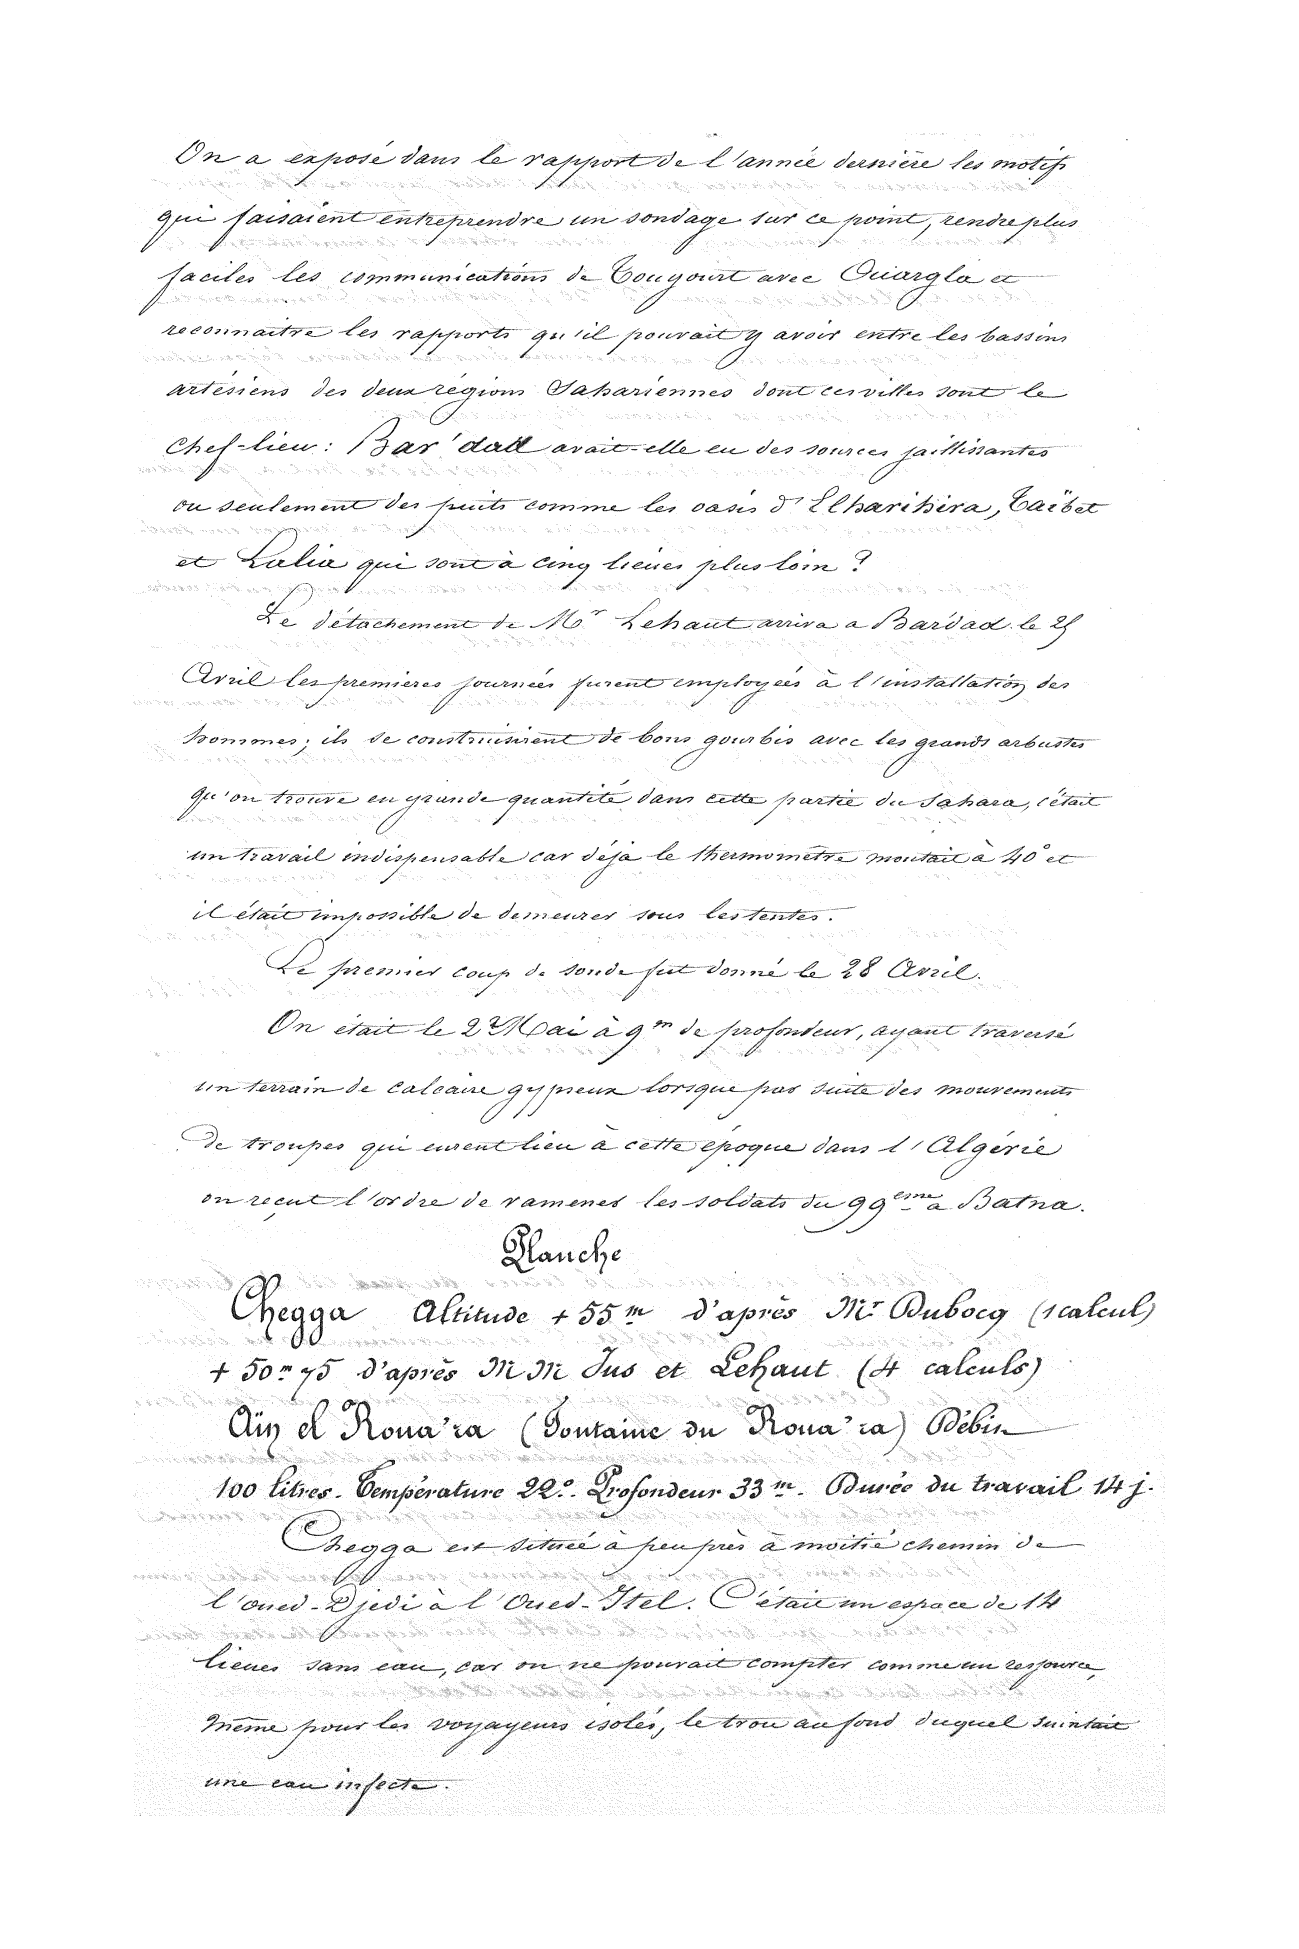 On a exposé dans le rapport de l'année dernière les motifs
qui faisaient entreprendre un sondage sur ce point, rendre plus
faciles les communications de Tougourt avec Ouargla et
reconnaitre les rapports qu'il pouvait y avoir entre les bassins
artésiens des deux régions Sahariennes dont ces villes sont le
Chef-lieu : Bar'dad avait-elle eu des sources jaillissantes
ou seulement des puits comme les oasis d'Elharihira, Taïbet
et Lalia qui sont à cinq lieues plus loin ?
Le détachement de Mr Lehaut arriva a Bar'dad le 25
Avril les premieres journées furent employées à l'installation des
hommes; ils se construisirent de bons gourbis avec les grands arbustes
qu'on trouve en grande quantité dans cette partie du Sahara, c'était
un travail indispensable car déja le thermomètre montait à 40° et
il était impossible de demeurer sous les tentes.
Le premier coup de sonde fut donné le 28 Avril.
On était le 2 Mai à 9m de profondeur, ayant traversé
un terrain de calcaire gypseux lorsque par suite des mouvements
de troupes qui eurent lieu à cette époque dans l'Algérie
on reçut l'ordre de ramener les soldats du 99eme a Batna.
Planche
Chegga Altitude + 55m d'après Mr Dubocq (1 calcul)
+ 50m 75 d'après M M Jus et Lehaut (4 calculs)
Aïn el Roua'ra (Fontaine du Roua'ra) Débin
100 litres. Température 22°. Profondeur 33m. Durée du travail 14 j.
Chegga est située à peu près à moitié chemin de
l'oued-Djedi à l'Oued-Itel. C'était un espace de 14
lieues sans eau, car on ne pouvait compter comme un ressource,
même pour les voyageurs isolés, le trou au fond duquel suintait
une eau infecte.